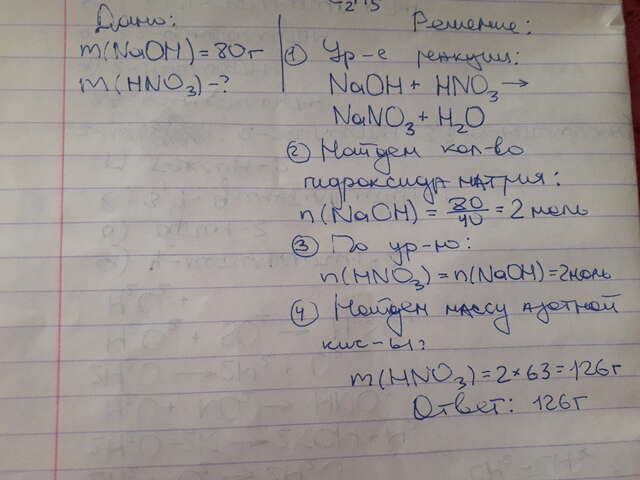 Дано:
m(NaOH)=80г
m(HNO3)-?
Решение:
① Ур-е реакции:
NaOH + HNO3 →
NaNO3 + H2O
② Найдем кол-во
гидроксида натрия:
n(NaOH) = 80/40 = 2 моль
③ По ур-ю:
n(HNO3) = n(NaOH) = 2моль
④ Найдем массу азотной
кис-ы:
m(HNO3) = 2×63 = 126г
Ответ: 126г